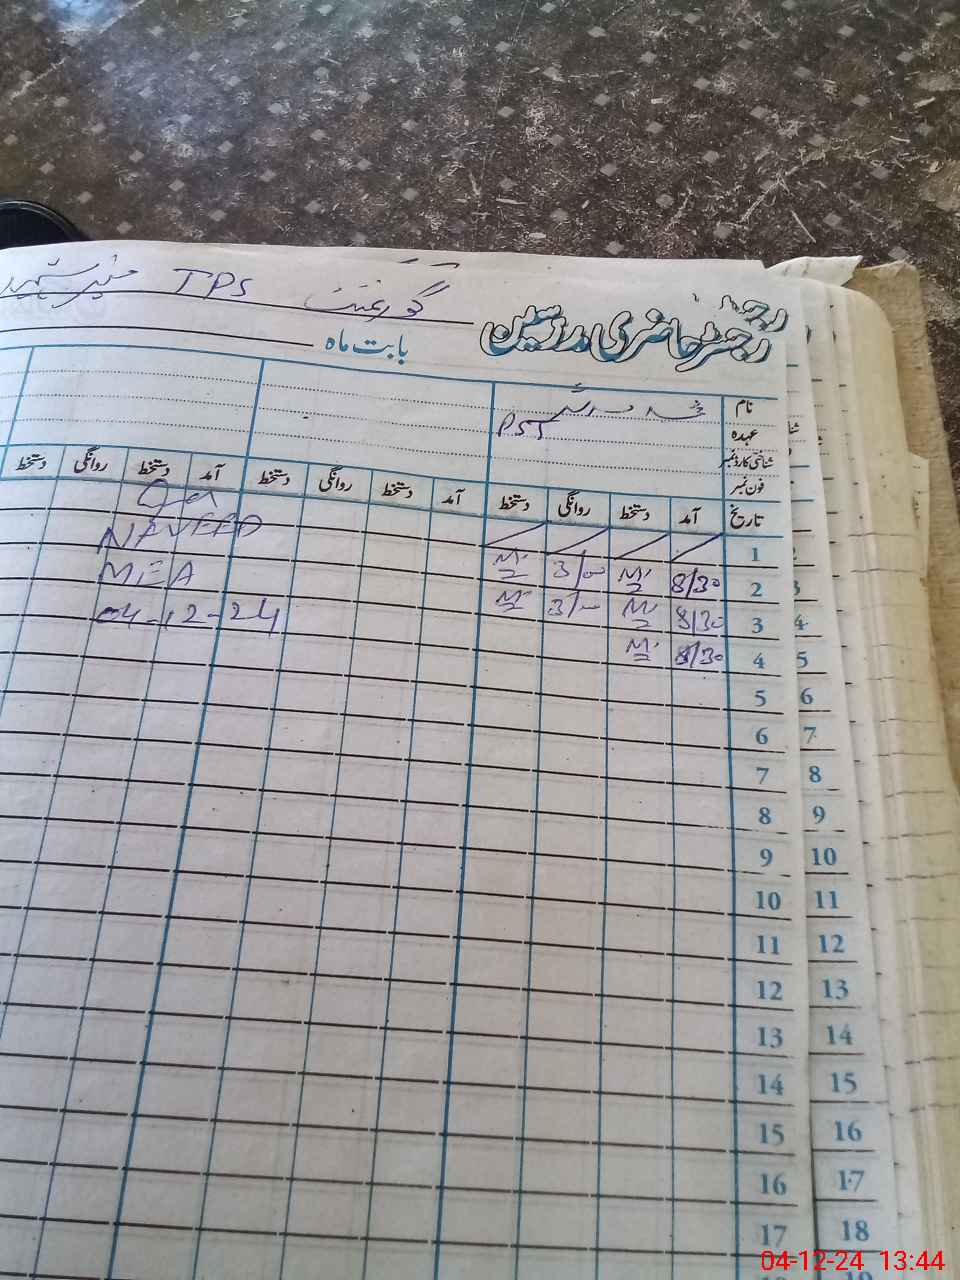 گورنمنٹ TPS
رجسٹر حاضری مدرسین
بابت ماہ
نام
عہدہ PST
شناختی کارڈ نمبر
فون نمبر
تاریخ آمد دستخط روانگی دستخط آمد دستخط روانگی دستخط آمد دستخط روانگی دستخط
1
2 8/30 M 3/00 M
3 8/30 M 3/00 M
4 8/30 M
NAVEED
MEA
04-12-24
5
6
7
8
9
10
11
12
13
14
15
16
17
2
3
4
5
6
7
8
9
10
11
12
13
14
15
16
17
18
04-12-24 13:44